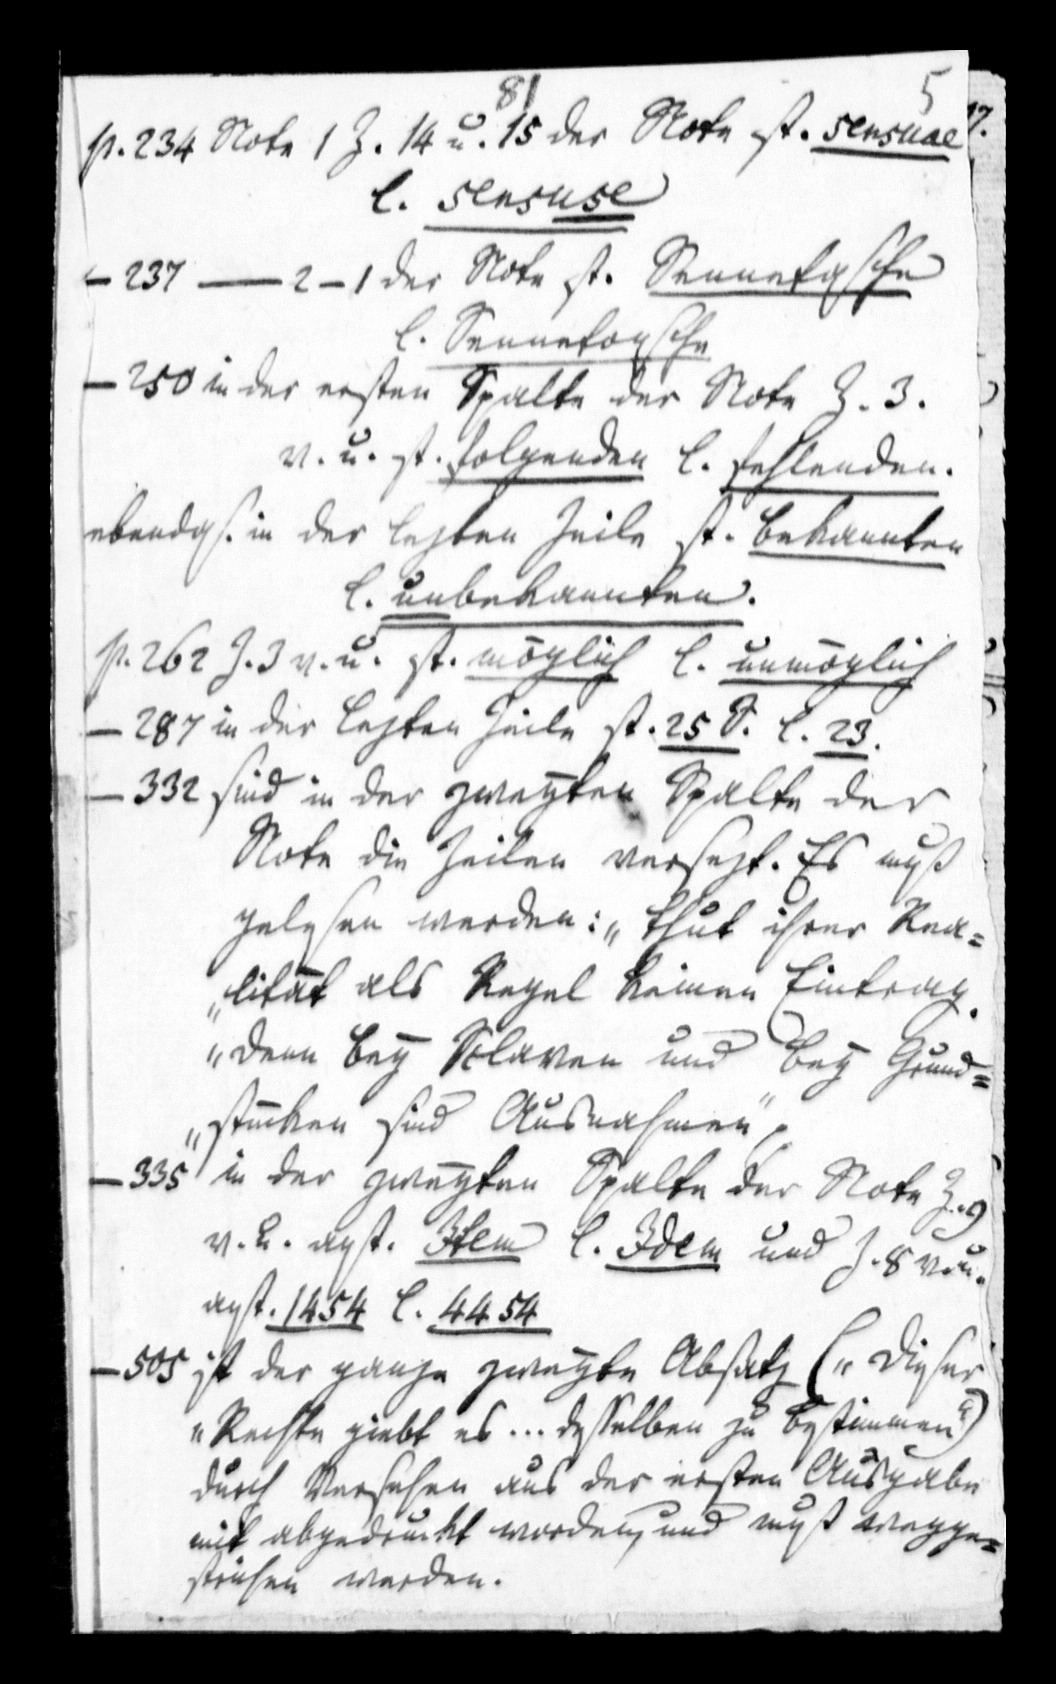 81 5
p. 234 Note 1 Z. 14 u. 15 der Note st. sensuae
l. sensuse
— 237 — 2 – 1 der Note st.
l.
— 250 in der ersten Spalte der Note Z. 3.
v. u. st. folgenden l. fehlenden.
ebendas. in der lezten Zeile st. bekannten
l. unbekannten.
p. 262 Z. 3 v. u. st. möglich l. unmöglich
— 287 in der lezten Zeile st. 25 S. l. 23.
— 332 sind in der zweyten Spalte der
Note die Zeilen versezt. Es muß
gelesen werden: „thut ihrer Rea=
„lität als Regel keinen Eintrag.
„Denn bey Sclaven und bey Grund=
„stücken sind Ausnahmen“.
— 335 in der zweyten Spalte der Note Z. 9
v. u. anst. Item l. Idem und Z. 8 v. u.
anst. 1454 l. 4454
— 505 ist der ganze zweyte Absatz („Dieser
„Rechte giebt es ... desselben zu bestimmen“)
durch Versehen aus der ersten Ausgabe
mit abgedruckt worden, und muß wegge=
strichen werden.